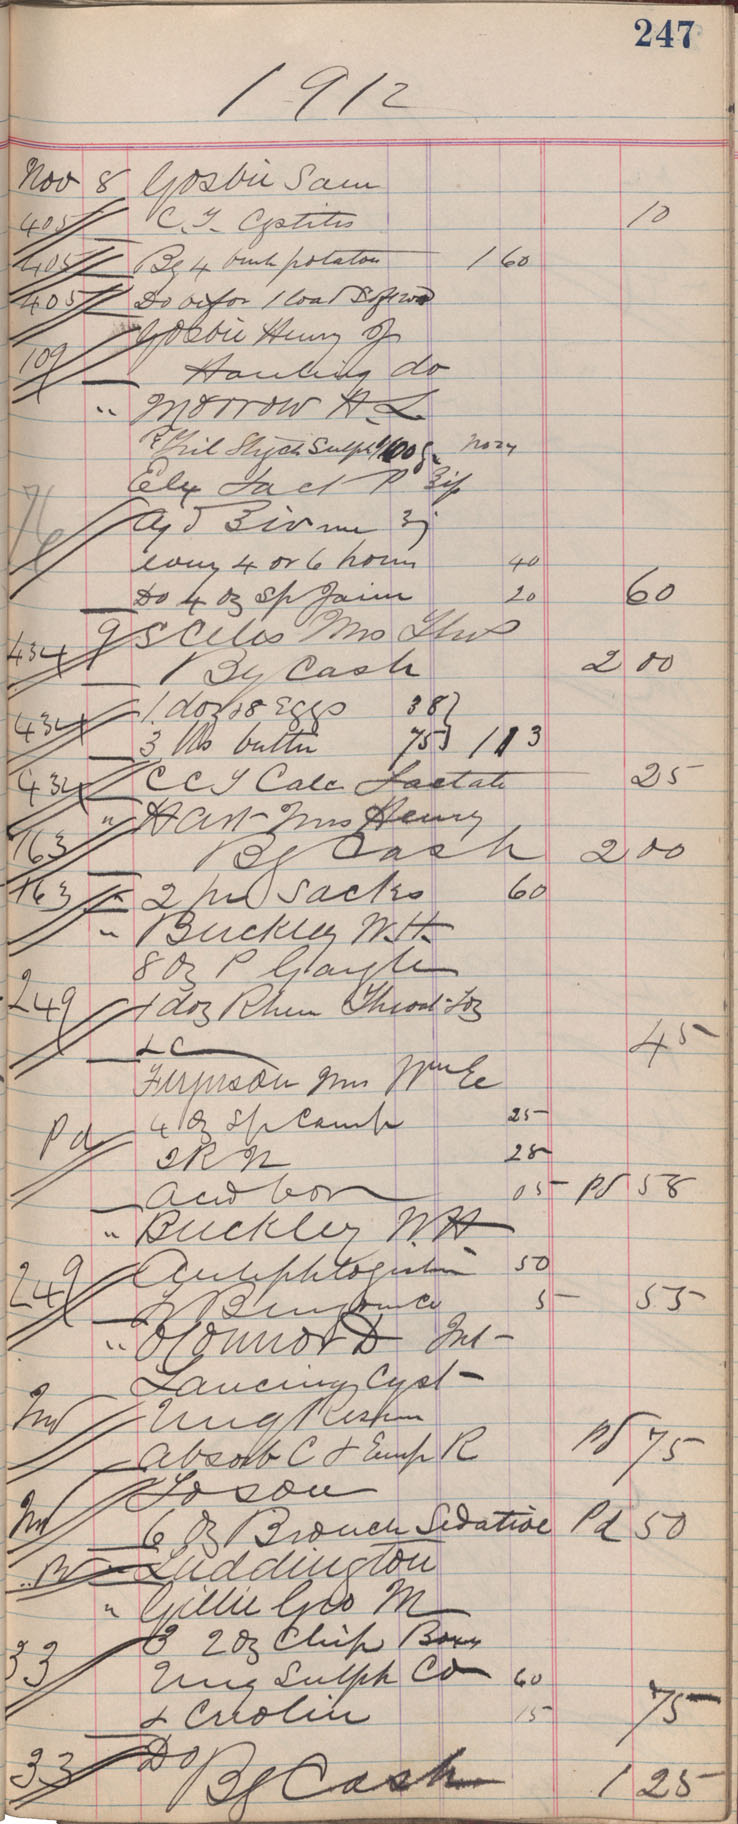 247
1912
Nov 8 Gosbie Sam
405 C. T. Cystitis 10
405 By 4 bush potatoes 1 60
405 Do for 1 load
109 Gosbie Henry
Hauling do
" Morrow H. L.
Sulph 1/100 g
Elix Lact P
76 Aq
every 4 or 6 hours 40
Do 4 oz Sp 20 60
434 9 Mrs Thos
By Cash 2 00
434 1 doz & 8 Eggs 38}
3 lbs butter 75} 1 13
434 C C T Calc Lactate 25
" Hart Mrs Henry
163 By Cash 2 00
163 " 2 pr Socks 60
" Buckley W. H.
8 oz P Gargle
249 1 doz Rhen Throat Loz
& C 45
Ferguson Mrs Wm E
Pd 4 oz Sp Camp 25
2 R 25
Acid bor 05 Pd 58
" Buckley W H
249 Antiphlogistin 50
5 55
" O'Connor D Int
Lancing Cyst
Ung
Absorb C & Emp R Pd 75
To son
6 oz Bronch Sedative Pd 50
" Luddington
" Gillie Geo M
33 3 2 oz Chip Boxes
Ung Sulph Co 60
& Creolin 15 75
33 Do
By Cash 1 25